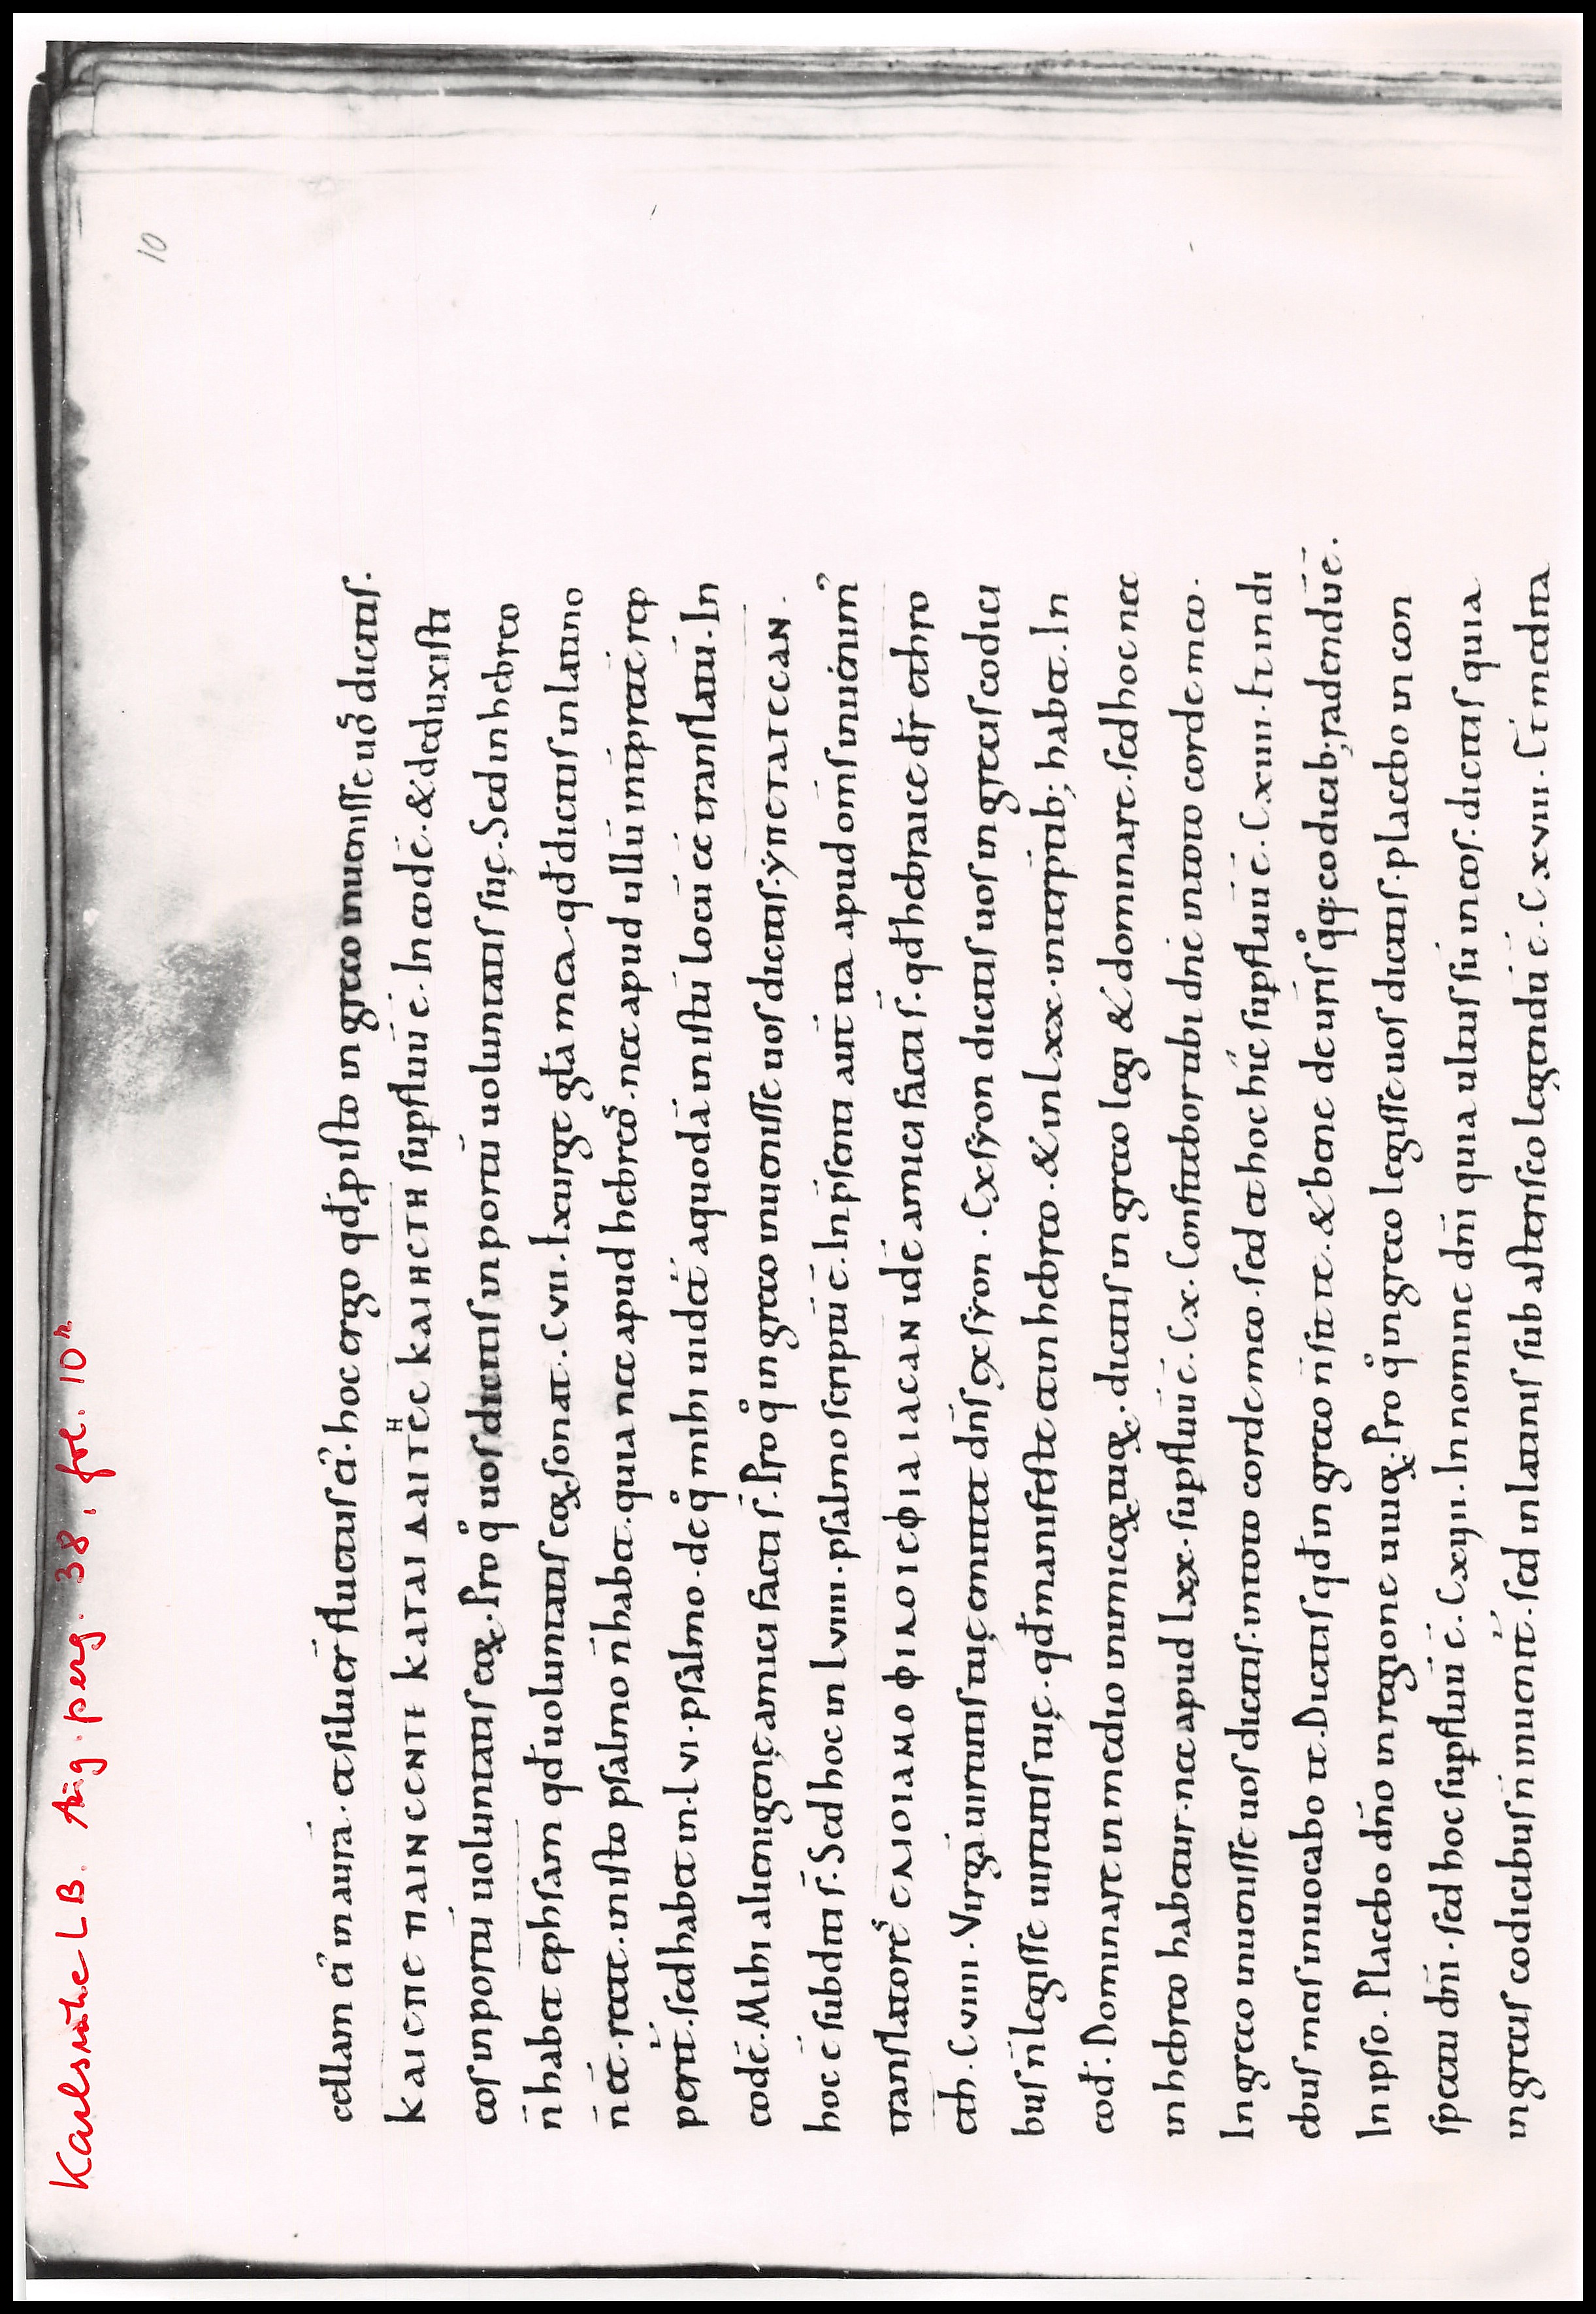 Karlsruhe LB. Aug. perg. 38, fol. 10r
10
cellam ei' in aurā. et siluer̄ fluctus ei'. hoc ergo qđ p isto in greco inuenisse uo̊ dicitis.
KAI ЄΠЄ ΠAIN CЄNTI KATAI ΔAITЄC KAI HCTH supfluū ē. In eodē. & deduxisti
eos in portū uoluntatis eoꝝ. Pro qͦ uos dicitis in portū uoluntatis suę. Sed in hebreo
n̄ habet ephsam qđ uoluntatis eoꝝ sonat. Cvii. Exurge gl̄a mea. qđ dicitis in latino
n̄ eē. recte. in isto psalmo n̄ habet. quia nec apud hebreos. nec apud ullū int̄pretē rep
perit̄. sed habet in. Lvi. psalmo. de qͦ mihi uidet̄ a quodā in istū locū eē translatū. In
eodē. Mihi alienigenę amici facti s̄. Pro qͦ in greco inuenisse uos dicitis. ẏΠЄTAΓЄCAN.
hoc ē subditi s̄. Sed hoc in Lviiii. psalmo scriptū ē. In p̄senti aut̄ ita apud om̄s inuenim'
translatores ЄΛIOIAMO ΦIΛOIЄΦIAIACAN idē amici facti s̄. qđ hebraice dr̄ ethro
eth. Cviiii. Virgā uirtutis tuę emittet dn̄s ex syon. Ex syon dicitis uos in grecis codici
bus n̄ legisse uirtutis tuę. qđ manifeste et in hebreo. & in Lxx. interp̄tib; habet. In
eođ. Dominare in medio inimicoꝝ tuoꝝ. dicitis in greco legi & dominare. sed hoc nec
in hebreo habetur. nec apud Lxx. supfluū ē. Cx. Confitebor tibi dn̄e in toto corde meo.
In greco inuenisse uos dicitis. in toto corde meo. sed et hoc hic supfluū ē. Cxiiii. Et in di
ebus meis inuocabo te. Dicitis qđ in greco n̄ sit te. & bene de ur̄is qͦq; codicib; radendū ē.
In ipso. Placebo dn̄o in regione uiuoꝝ. Pro qͦ in greco legisse uos dicitis. placebo in con
spectu dn̄i. sed hoc supfluū ē. Cxvii. In nomine dn̄i quia ultus sū in eos. dicitis quia
in grecis codicibus n̄ inuenit̄. sed in latinis sub asterisco legendū ē. Cxviii. Et medita